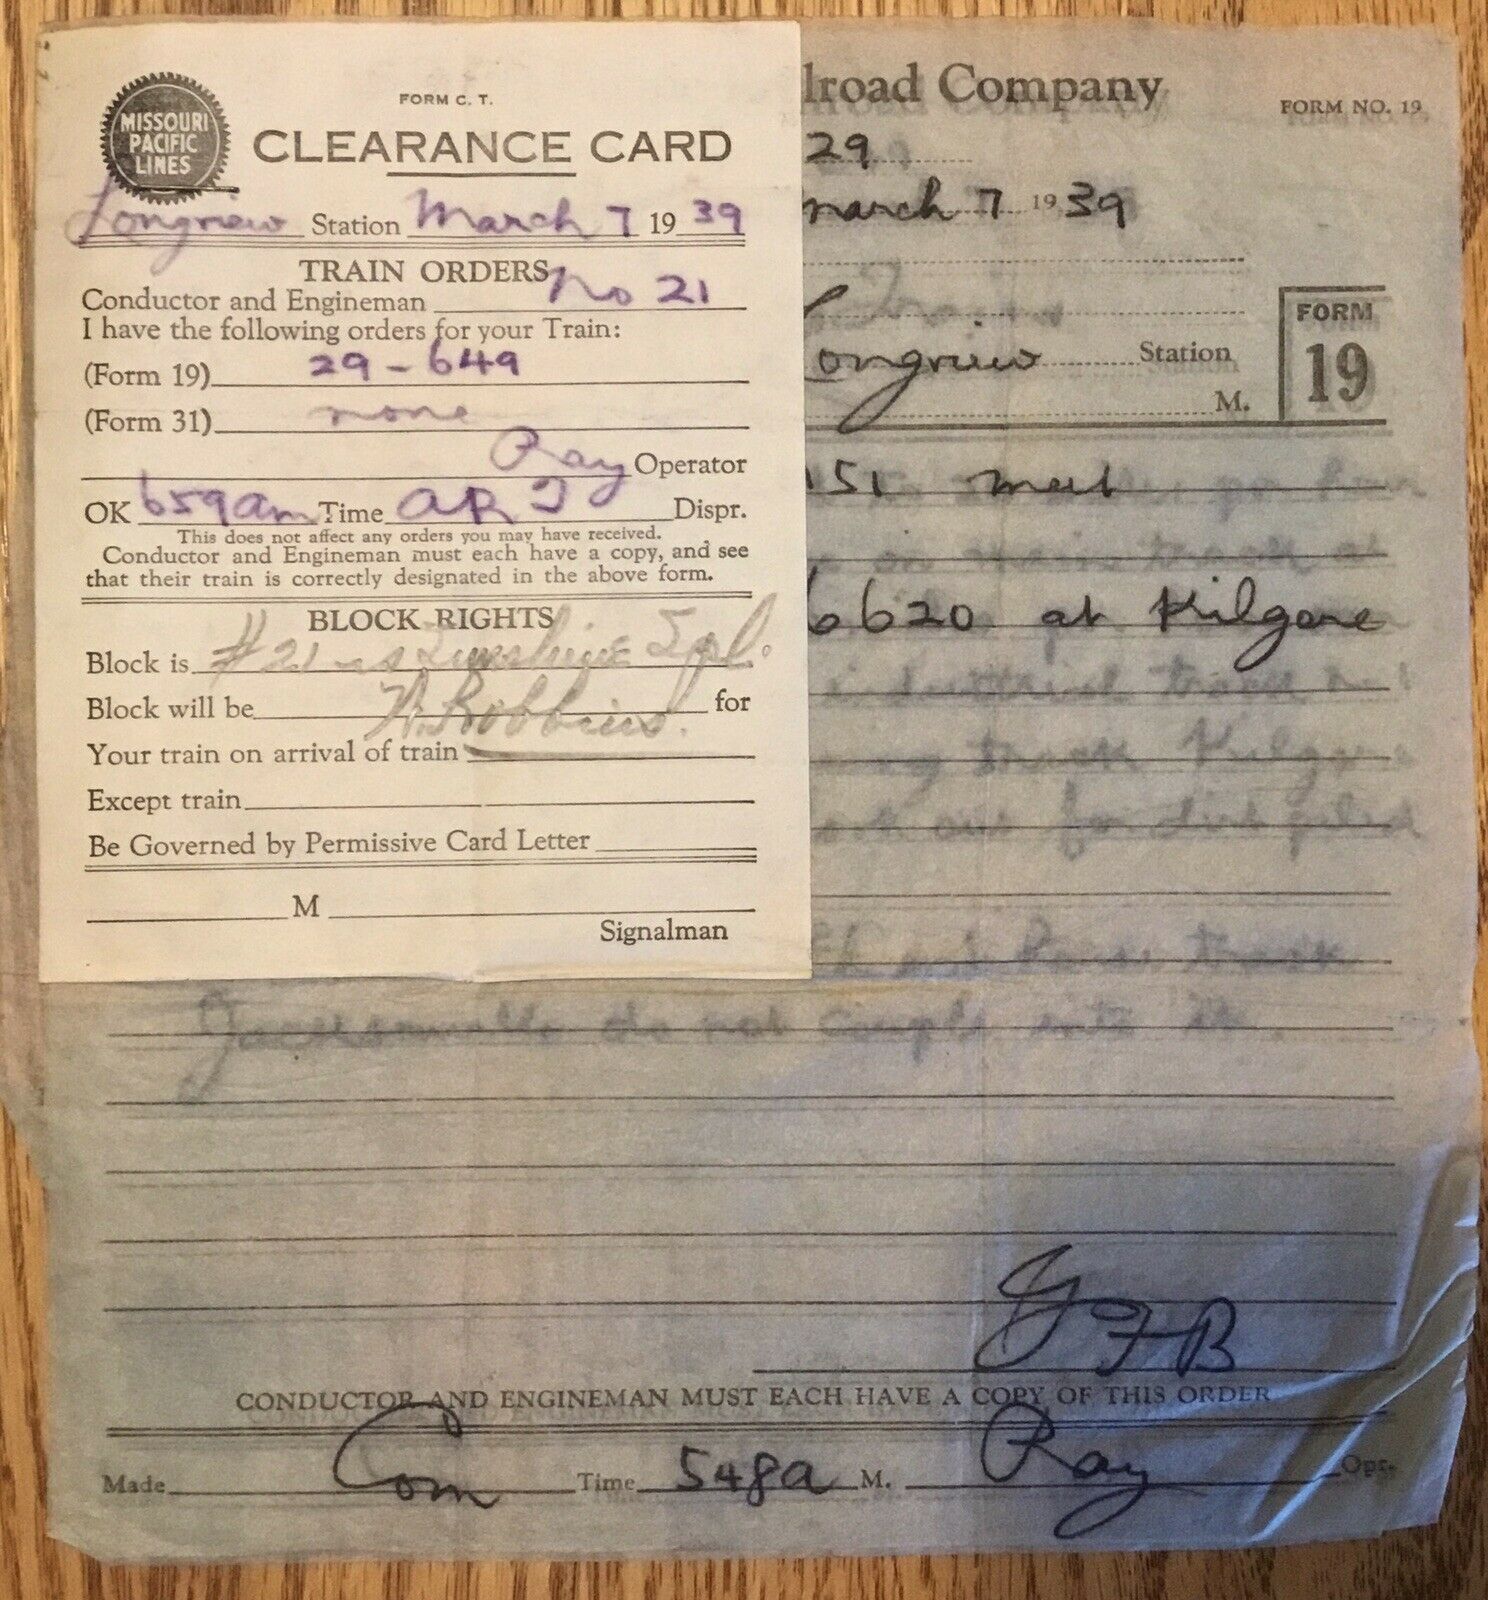 MISSOURI
PACIFIC
LINES
FORM C. T.
CLEARANCE CARD
Longview Station March 7 1939
TRAIN ORDERS
Conductor and Engineman No 21
I have the following orders for your Train:
(Form 19) 29 - 649
(Form 31) none
Ray Operator
OK 659am Time ARJ Dispr.
This does not affect any orders you may have received.
Conductor and Engineman must each have a copy, and see
that their train is correctly designated in the above form.
BLOCK RIGHTS
Block is #21 is Sunshine Spl.
Block will be W. Robbins. for
Your train on arrival of train
Except train
Be Governed by Permissive Card Letter
M
Signalman
lroad Company
FORM NO. 19
29
march 7 1939
Longview Station
M.
FORM
19
151 meet
6620 at Kilgore
on main track at
industrial track
track Kilgore
house track
Jacksonville do not couple into it.
GFB
CONDUCTOR AND ENGINEMAN MUST EACH HAVE A COPY OF THIS ORDER
Made Com Time 548a M. Ray Opr.